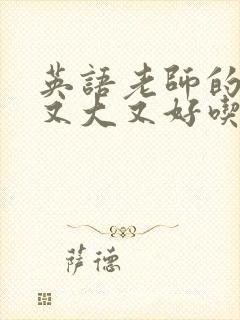 英語老師的
又大又好喫
萨德